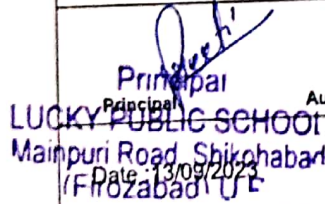 Principal
Principal Au
LUCKY PUBLIC SCHOOL
Mainpuri Road, Shikohabad
Date :13/09/2023
(Firozabad) U.P.